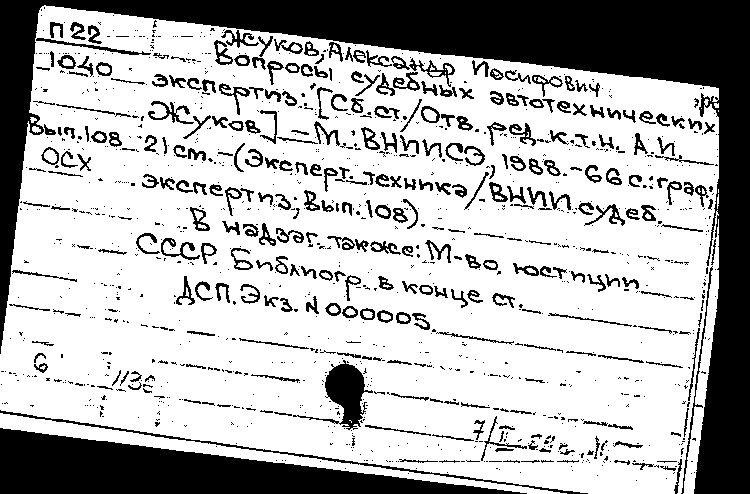 П22
Жуков, Александр Иосифович
1040
Вопросы судебных автотехнических
экспертиз: [Сб. ст./Отв. ред. к.т.н. А.И.
Жуков] – М.: ВНИИСЭ, 1988. – 66 с.: граф.;
Вып. 108
21 см. – (Эксперт. техника / ВНИИ судеб.
ОСХ
экспертиз; Вып. 108).
В надзаг. также: М-во юстиции
СССР. Библиогр. в конце ст.
ДСП. Экз. N 000005.
6
113б
7/II